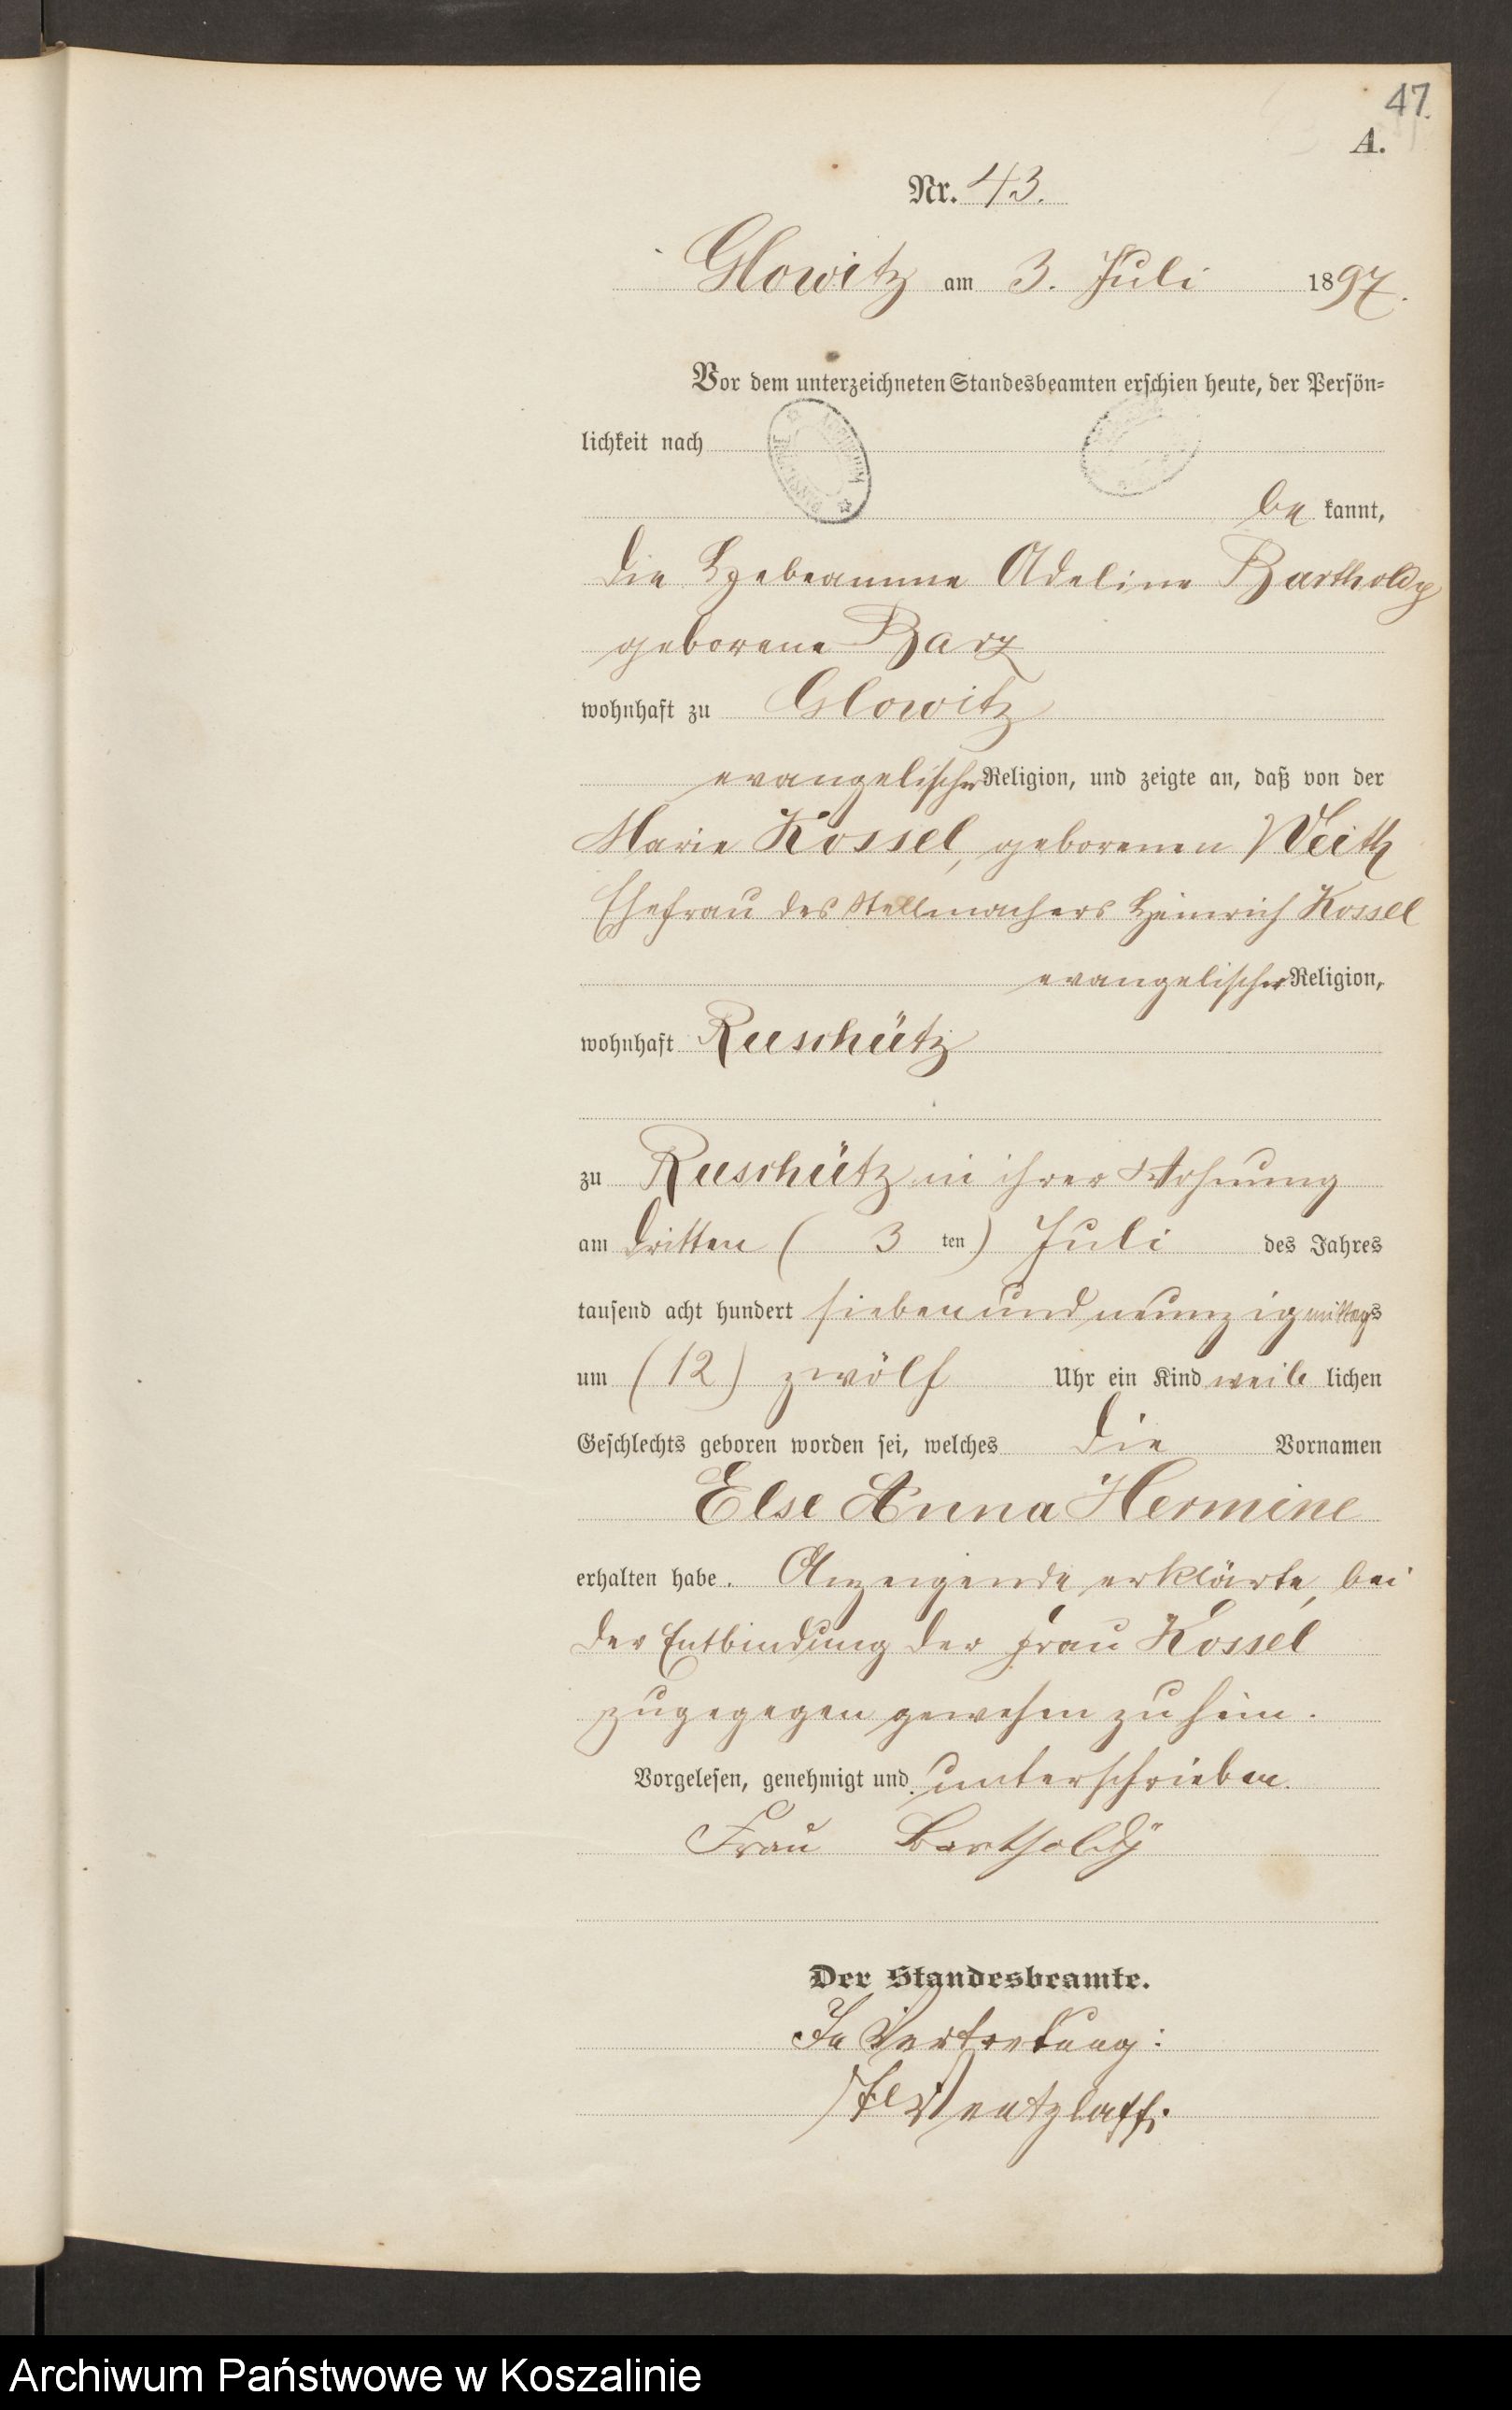 47.
A.
Nr. 43.
Glowitz am 3. Juli 1897.
Vor dem unterzeichneten Standesbeamten erschien heute, der Persön-
lichkeit nach
be kannt,
die Hebeamme Adeline Bartholdy
geborene Barz
wohnhaft zu Glowitz
evangelischer Religion, und zeigte an, daß von der
Marie Kossel, geborenen Veith
Ehefrau des Stellmachers Heinrich Kossel
evangelischer Religion,
wohnhaft Ruschütz
zu Ruschütz in ihrer Wohnung
am dritten ( 3 ten) Juli des Jahres
tausend acht hundert siebenundneunzig mittags
um (12) zwölf Uhr ein Kind weib lichen
Geschlechts geboren worden sei, welches die Vornamen
Else Anna Hermine
erhalten habe. Anzeigende erklärte, bei
der Entbindung der Frau Kossel
zugegegen gewesen zu sein.
Vorgelesen, genehmigt und unterschrieben.
Frau Bartholdÿ
Der Standesbeamte.
In Vertretung:
Wentzlaff.
Archiwum Państwowe w Koszalinie